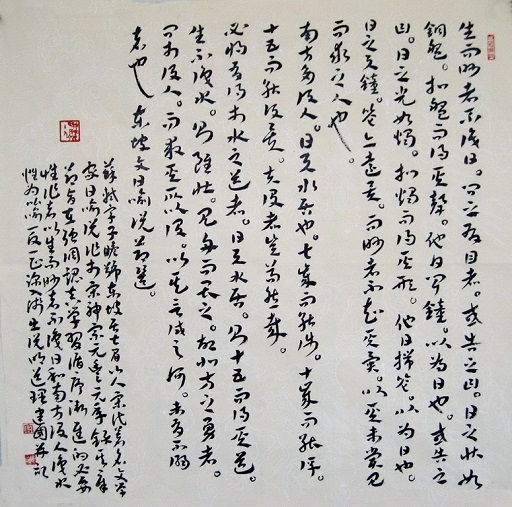 生而眇者不識日。問之有目者。或告之曰。日之狀如
銅盤。扣盤而得其聲。他日聞鐘。以為日也。或告之
曰。日之光如燭。捫燭而得其形。他日揣籥。以為日也。
日之與鐘。籥亦遠矣。而眇者不知其異。以其未嘗見
而求之人也。
南方多沒人。日與水居也。七歲而能涉。十歲而能浮。
十五而能沒矣。夫沒者豈苟然哉。
必將有得於水之道者。日與水居。則十五而得其道。
生不識水。則雖壯。見舟而畏之。故北方之勇者。
問於沒人。而求其所以沒。以其言試之河。未有不溺
者也 東坡文日喻說節選。
蘇軾字子瞻號東坡居士眉山人宋代著名文學
家日喻說作於宋神宗元豐元年
旨在強調認真學習循序漸進的必要
性作者以生而眇者不識日和南方沒人識水
性為喻 正 說明道理建國並記